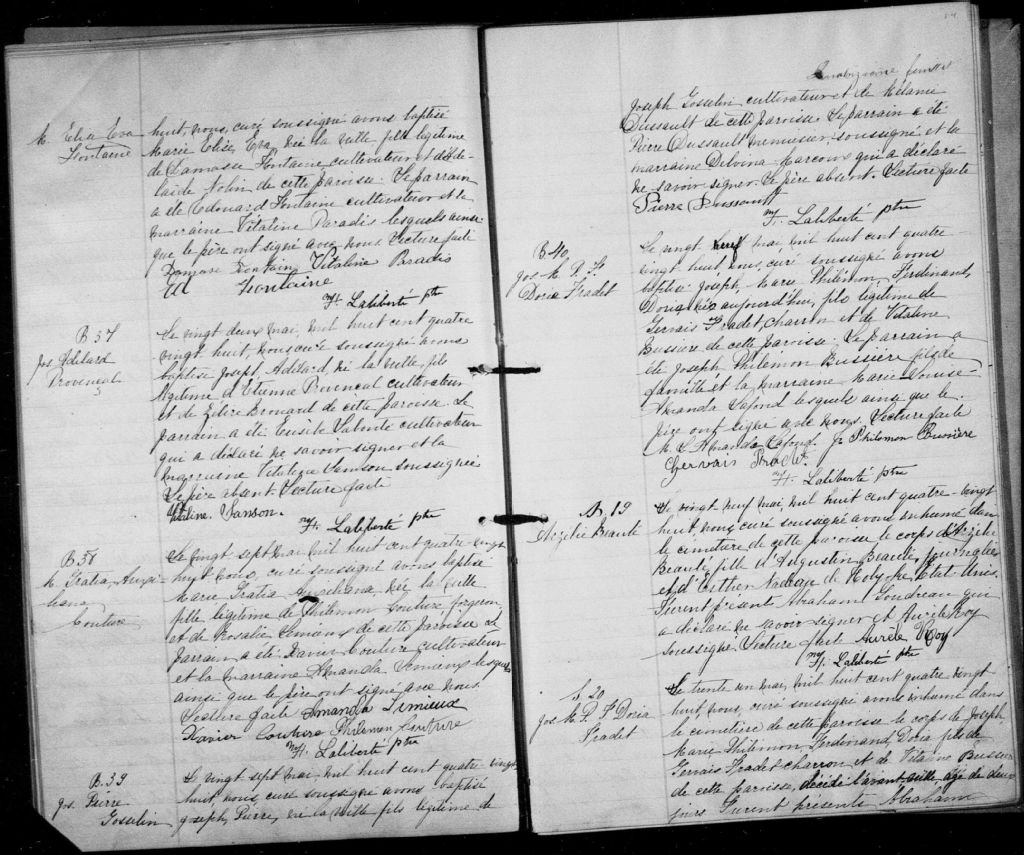 M. Elise Eva
Fontaine
huit, nous, curé soussigné avons baptisé
Marie Elise, Eva, née la veille fille légitime
de Damasse Fontaine cultivateur et d'Adé-
laide Nolin de cette paroisse. Le parrain
a été Edouard Fontaine cultivateur et la
marraine Vitaline Paradis lesquels ainsi
que le père ont signé avec nous Lecture faite
Damase Fontaine Vitaline Paradis
Ed Fontaine
Laliberté ptre
B 37
Jos Adélard
Provencal
Le vingt deux mai, mil huit cent quatre
vingt huit, nous curé soussigné avons
baptisé Joseph, Adélard, né la veille, fils
légitime d'Etienne Provencal cultivateur
et de Brouard de cette paroisse. Le
parrain a été Eusèbe cultivateur
qui a déclaré ne savoir signer et la
marraine Samson soussignée
Le père absent. Lecture faite
Samson.
Laliberté ptre
B 38
M. Gratia,
Couture
Le vingt sept mai, mil huit cent quatre-vingt
huit nous, curé soussigné avons baptisé
Marie Gratia née la veille
fille légitime de Philémon Couture forgeron
et de Rosalie Lemieux de cette paroisse Le
parrain a été Xavier Couture cultivateur
et la marraine Amanda Lemieux lesquels
ainsi que le père ont signé avec nous.
Lecture faite Amanda Lemieux
Xavier Couture Philemon Couture
Laliberté ptre
B. 39
Jos. Pierre
Gosselin
Le vingt sept mai, mil huit cent quatre vingt
huit, nous, curé soussigné avons baptisé
Joseph, Pierre, né la veille fils légitime de
feuillet
Joseph Gosselin cultivateur et de Mélanie
Dussault de cette paroisse. Le parrain a été
Pierre Dussault menuisier, soussigné et la
marraine Delvina Marcoux qui a déclaré
ne savoir signer. Le père absent. Lecture faite
Pierre Dussault
Laliberté ptre
B 40,
Jos M. P. F.
Doria Fradet
Le vingt neuf mai, mil huit cent quatre-
vingt huit, nous, curé soussigné avons
baptisé Joseph, Marie, Philémon, Ferdinand,
Doria né aujourd'hui, fils légitime de
Gervais Fradet, charron et de Vitaline
Bussiere de cette paroisse. Le parrain a
été Joseph Philémon Bussière fils de
famille et la marraine Marie-Louise-
Amanda Lafond lesquels ainsi que le
père ont signé avec nous. Lecture faite
M. L. Amanda Lafond. Js Philemon Bussière
Gervais Fradet.
Laliberté ptre
S. 19
Azélie Beaulé
Le vingt neuf mai, mil huit cent quatre-vingt
huit nous curé soussigné avons inhumé dans
le cimetière de cette paroisse le corps d'Azélie
Beaulé, fille d'Augustin Beaulé, journalier
et d'Esther Nadeau de Holyoke, Etats Unis.
Furent présents Abraham Goudreau qui
a déclaré ne savoir signer et Aurèle Roy
soussigné Lecture faite Aurèle Roy
Laliberté ptre
S. 20
Jos M. P. F Doria
Fradet
Le trente un mai, mil huit cent quatre vingt
huit, nous, curé soussigné avons inhumé dans
le cimetière de cette paroisse le corps de Joseph
Marie Philémon, Ferdinand, Doria fils de
Gervais Fradet charron et de Vitaline Bussiere
de cette paroisse, décédé l'avant veille, agé de deux
jours Furent présents Abraham